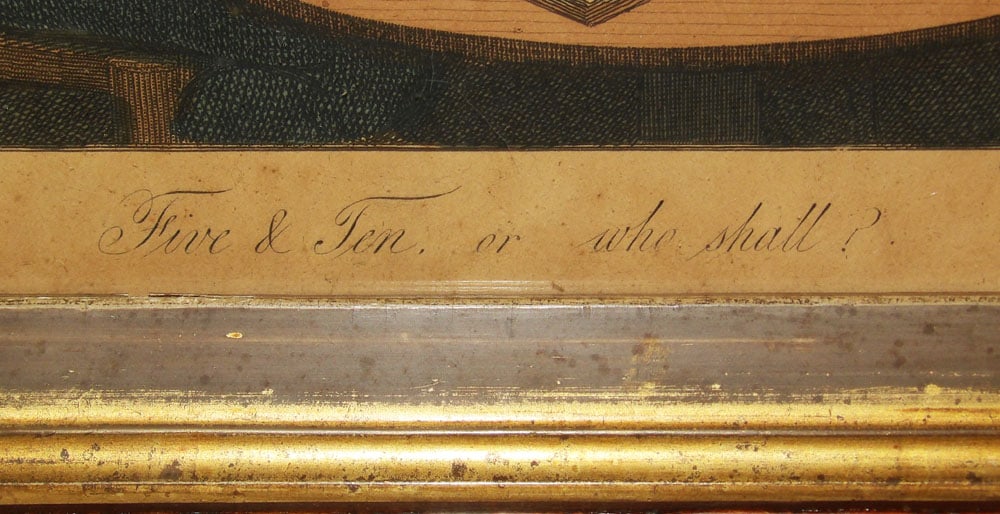 Five & Ten. or who shall?